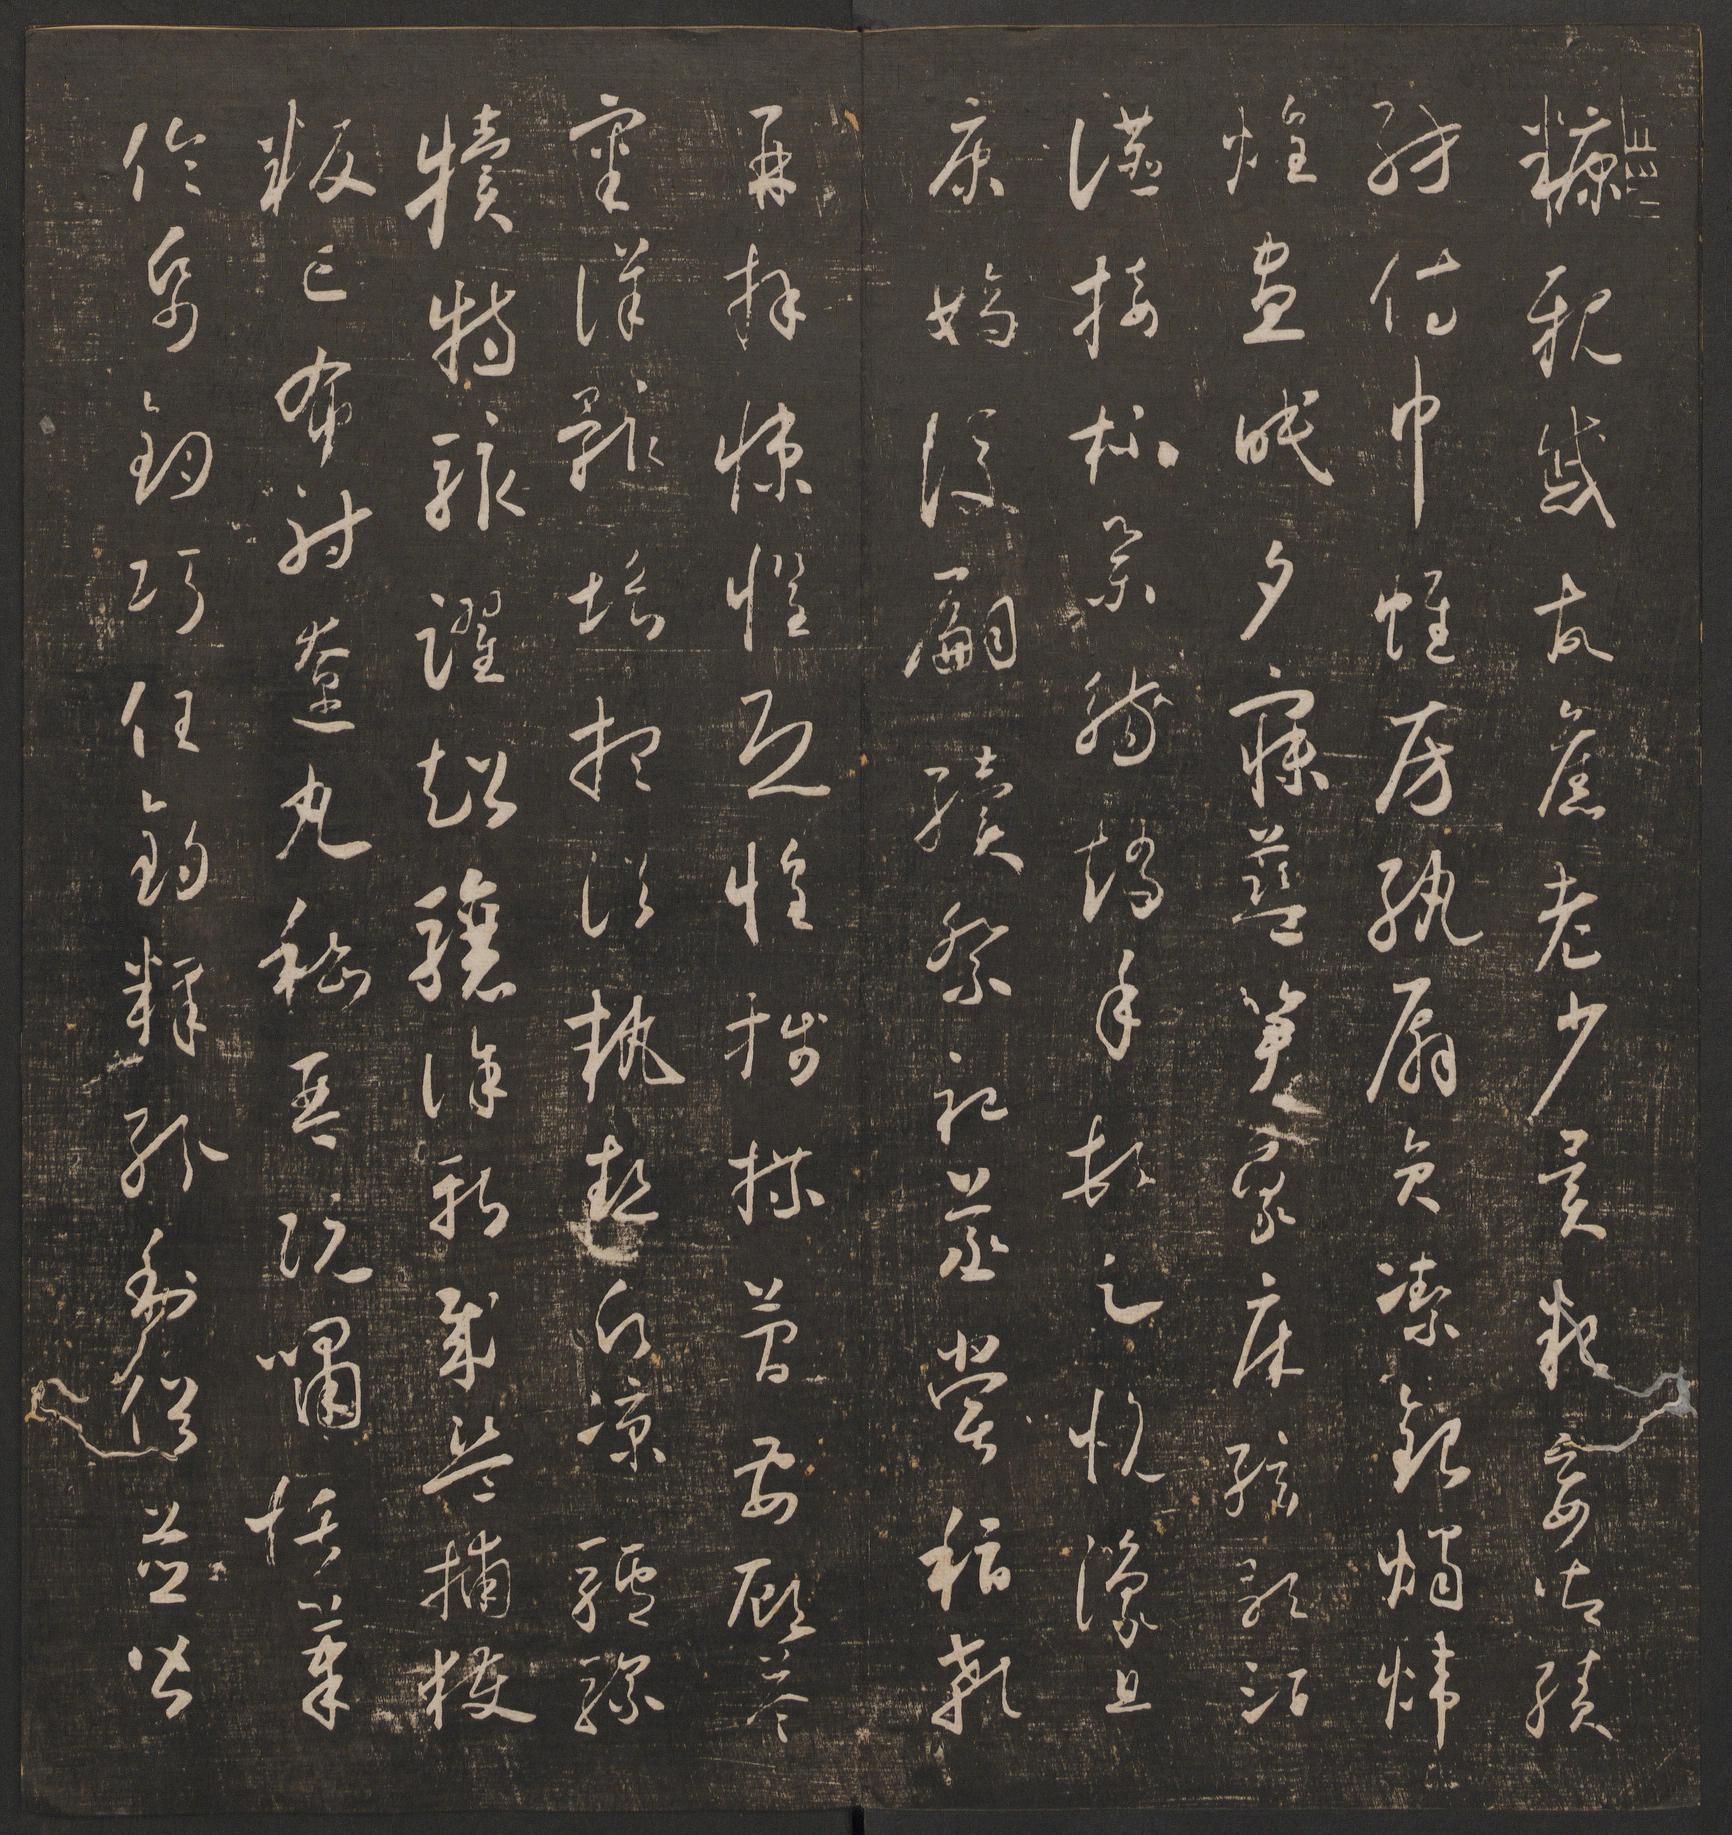 糠親戚故舊老少異糧妾御績
紡侍巾帷房紈扇員潔銀燭煒
煌晝眠夕寐藍筍象床弦歌酒
讌接杯舉觴矯手頓足悅豫且
康嫡後嗣續祭祀蒸嘗稽顙
再拜悚懼恐惶牋牒簡要顧答
審詳骸垢想浴執熱願涼驢騾
犢特駭躍超驤誅斬賊盜捕獲
叛亡布射遼丸嵇琴阮嘯恬筆
倫紙鈞巧任釣釋紛利俗並皆